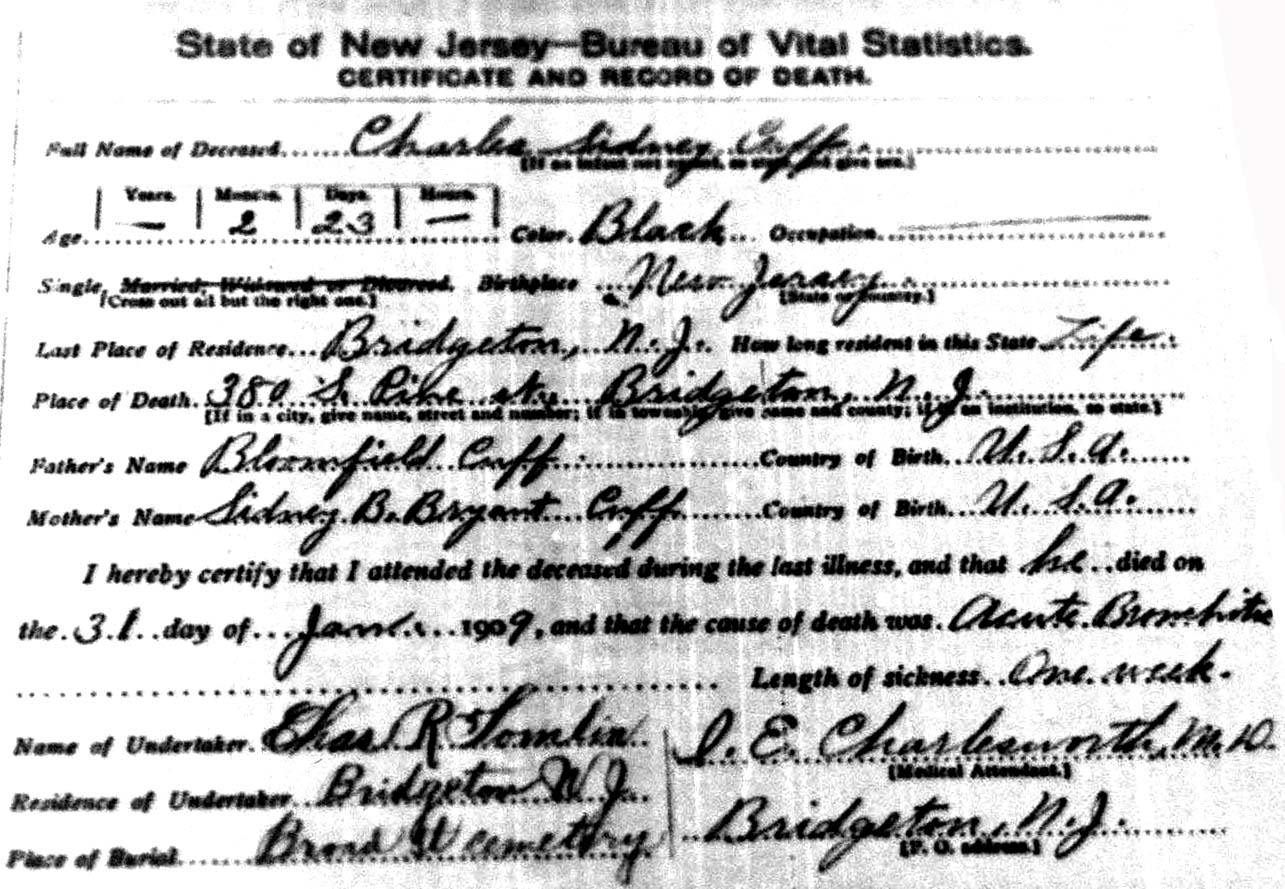 State of New Jersey—Bureau of Vital Statistics.
CERTIFICATE AND RECORD OF DEATH.
Full Name of Deceased Charles Sidney Cuff
[If an infant not named, so state, and give sex.]
Years. Months. Days. Hours.
Age — 2 23 — Color. Black Occupation
Single, Married, Widowed or Divorced. Birthplace New Jersey
[Cross out all but the right one.] [State or Country.]
Last Place of Residence Bridgeton, N.J. How long resident in this State Life
Place of Death. 380 S. Pine st., Bridgeton, N.J.
[If in a city, give name, street and number; if in township give name and county; if in an institution, so state.]
Father's Name Bloomfield Cuff Country of Birth U.S.A.
Mother's Name Sidney B. Bryant Cuff Country of Birth U.S.A.
I hereby certify that I attended the deceased during the last illness, and that he died on
the 31 day of Jan. 1909, and that the cause of death was Acute Bronchitis
Length of sickness One week.
Name of Undertaker. Chas R Tomlin I. E. Charlesworth, M.D.
[Medical Attendant.]
Residence of Undertaker Bridgeton N J
Place of Burial Broad St cemetery Bridgeton, N.J.
[P. O. address.]